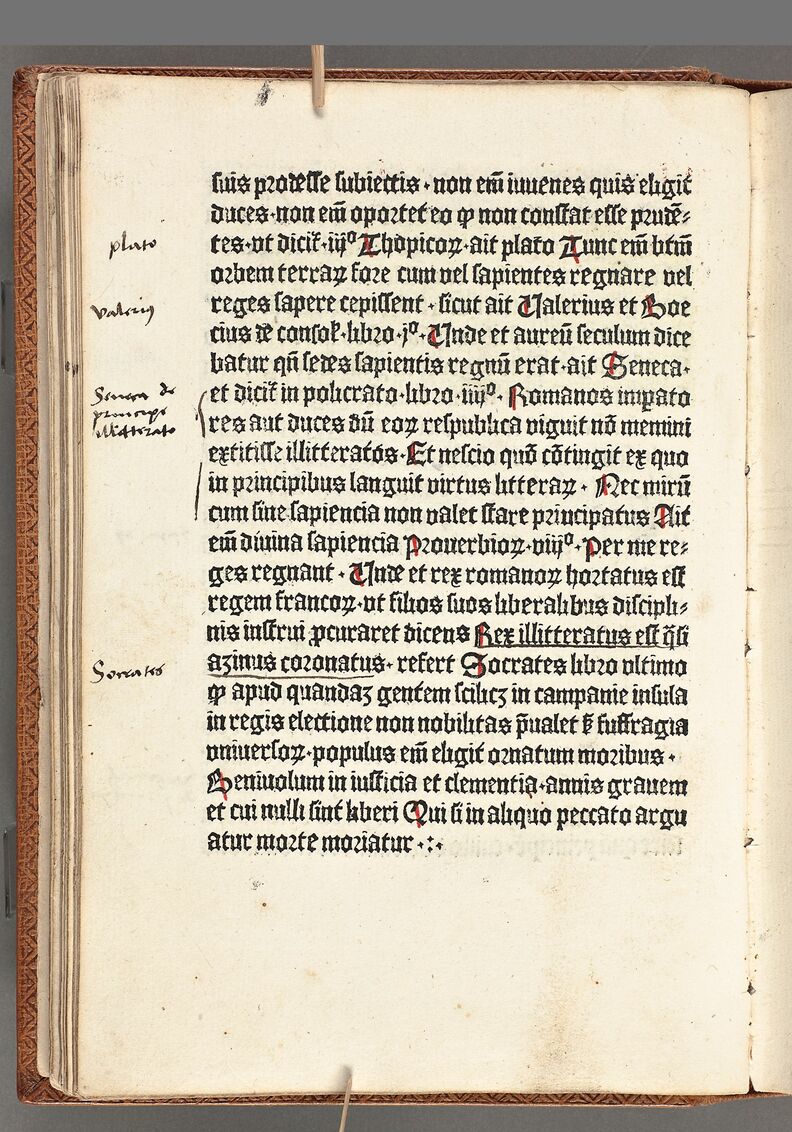 suis prodesse subiectis · non em̄ iuuenes quis eligit
plato
duces · non em̄ oportet eo ꝙ non constat esse prudē⸗
tes · vt dicit̄ · iij⁰ Thopicoꝝ · ait plato Tunc em̄ btm̄
orbem terraꝝ fore cum vel sapientes regnare vel
valerius
reges sapere cepissent · sicut ait Valerius et Boe
cius de consol̄ · libro · j⁰ · Vnde et aureū seculum dice
batur qn̄ sedes sapientis regnū erat · ait Seneca ·
Seneca de
principe
illitterato
et dicit̄ in policrato · libro · iiij⁰ · Romanos impato
res aut duces dū eoꝝ respublica viguit nō memini
extitisse illitteratos · Et nescio quō cōtingit ex quo
in principibus languit virtus litteraꝝ · Nec mirū
cum sine sapiencia non valet stare principatus Ait
em̄ diuina sapiencia Prouerbioꝝ · viij⁰ · Per me re⸗
ges regnant · Vnde et rex romanoꝝ hortatus est
regem francoꝝ · vt filios suos liberalibus discipli⸗
nis instrui ꝓcuraret dicens Rex illitteratus est q̄si
Socrates
azinus coronatus · refert Socrates libro vltimo
ꝙ apud quandaꝫ gentem scilicꝫ in campanie insula
in regis electione non nobilitas p̄ualet s̄ suffragia
vniuersoꝝ · populus em̄ eligit ornatum moribus ·
Beniuolum in iusticia et clementia · annis grauem
et cui nulli sint liberi Qui si in aliquo peccato argu
atur morte moriatur · : ·